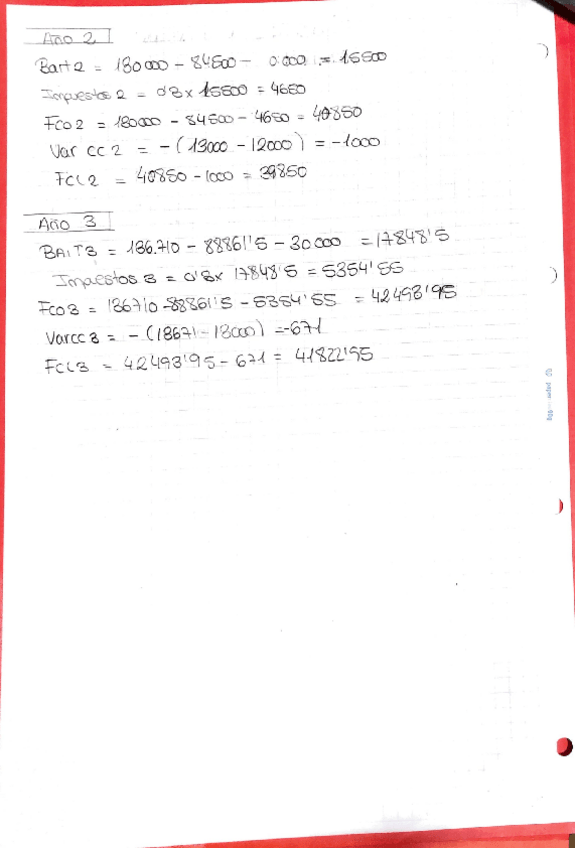 Año 2
Bait 2 = 130000 - 84500 - 0.000 = 15500
Impuestos 2 = 0'3 x 15500 = 4650
FCO 2 = 130000 - 84500 - 4650 = 40850
Var CC 2 = -(13000 - 12000) = -1000
FCL 2 = 40850 - 1000 = 39850
Año 3
BAIT3 = 136.710 - 88861'5 - 30000 = 17848'5
Impuestos 3 = 0'3x 17848'5 = 5354'55
FCO 3 = 136710 - 88861'5 - 5354'55 = 42493'95
Var CC 3 = - (13671 - 13000) = -671
FCL3 = 42493'95 - 671 = 41822'95